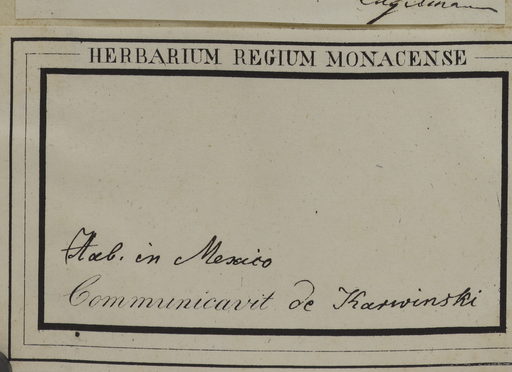 HERBARIUM REGIUM MONACENSE
Hab. in Mexico
Communicavit de Karwinski